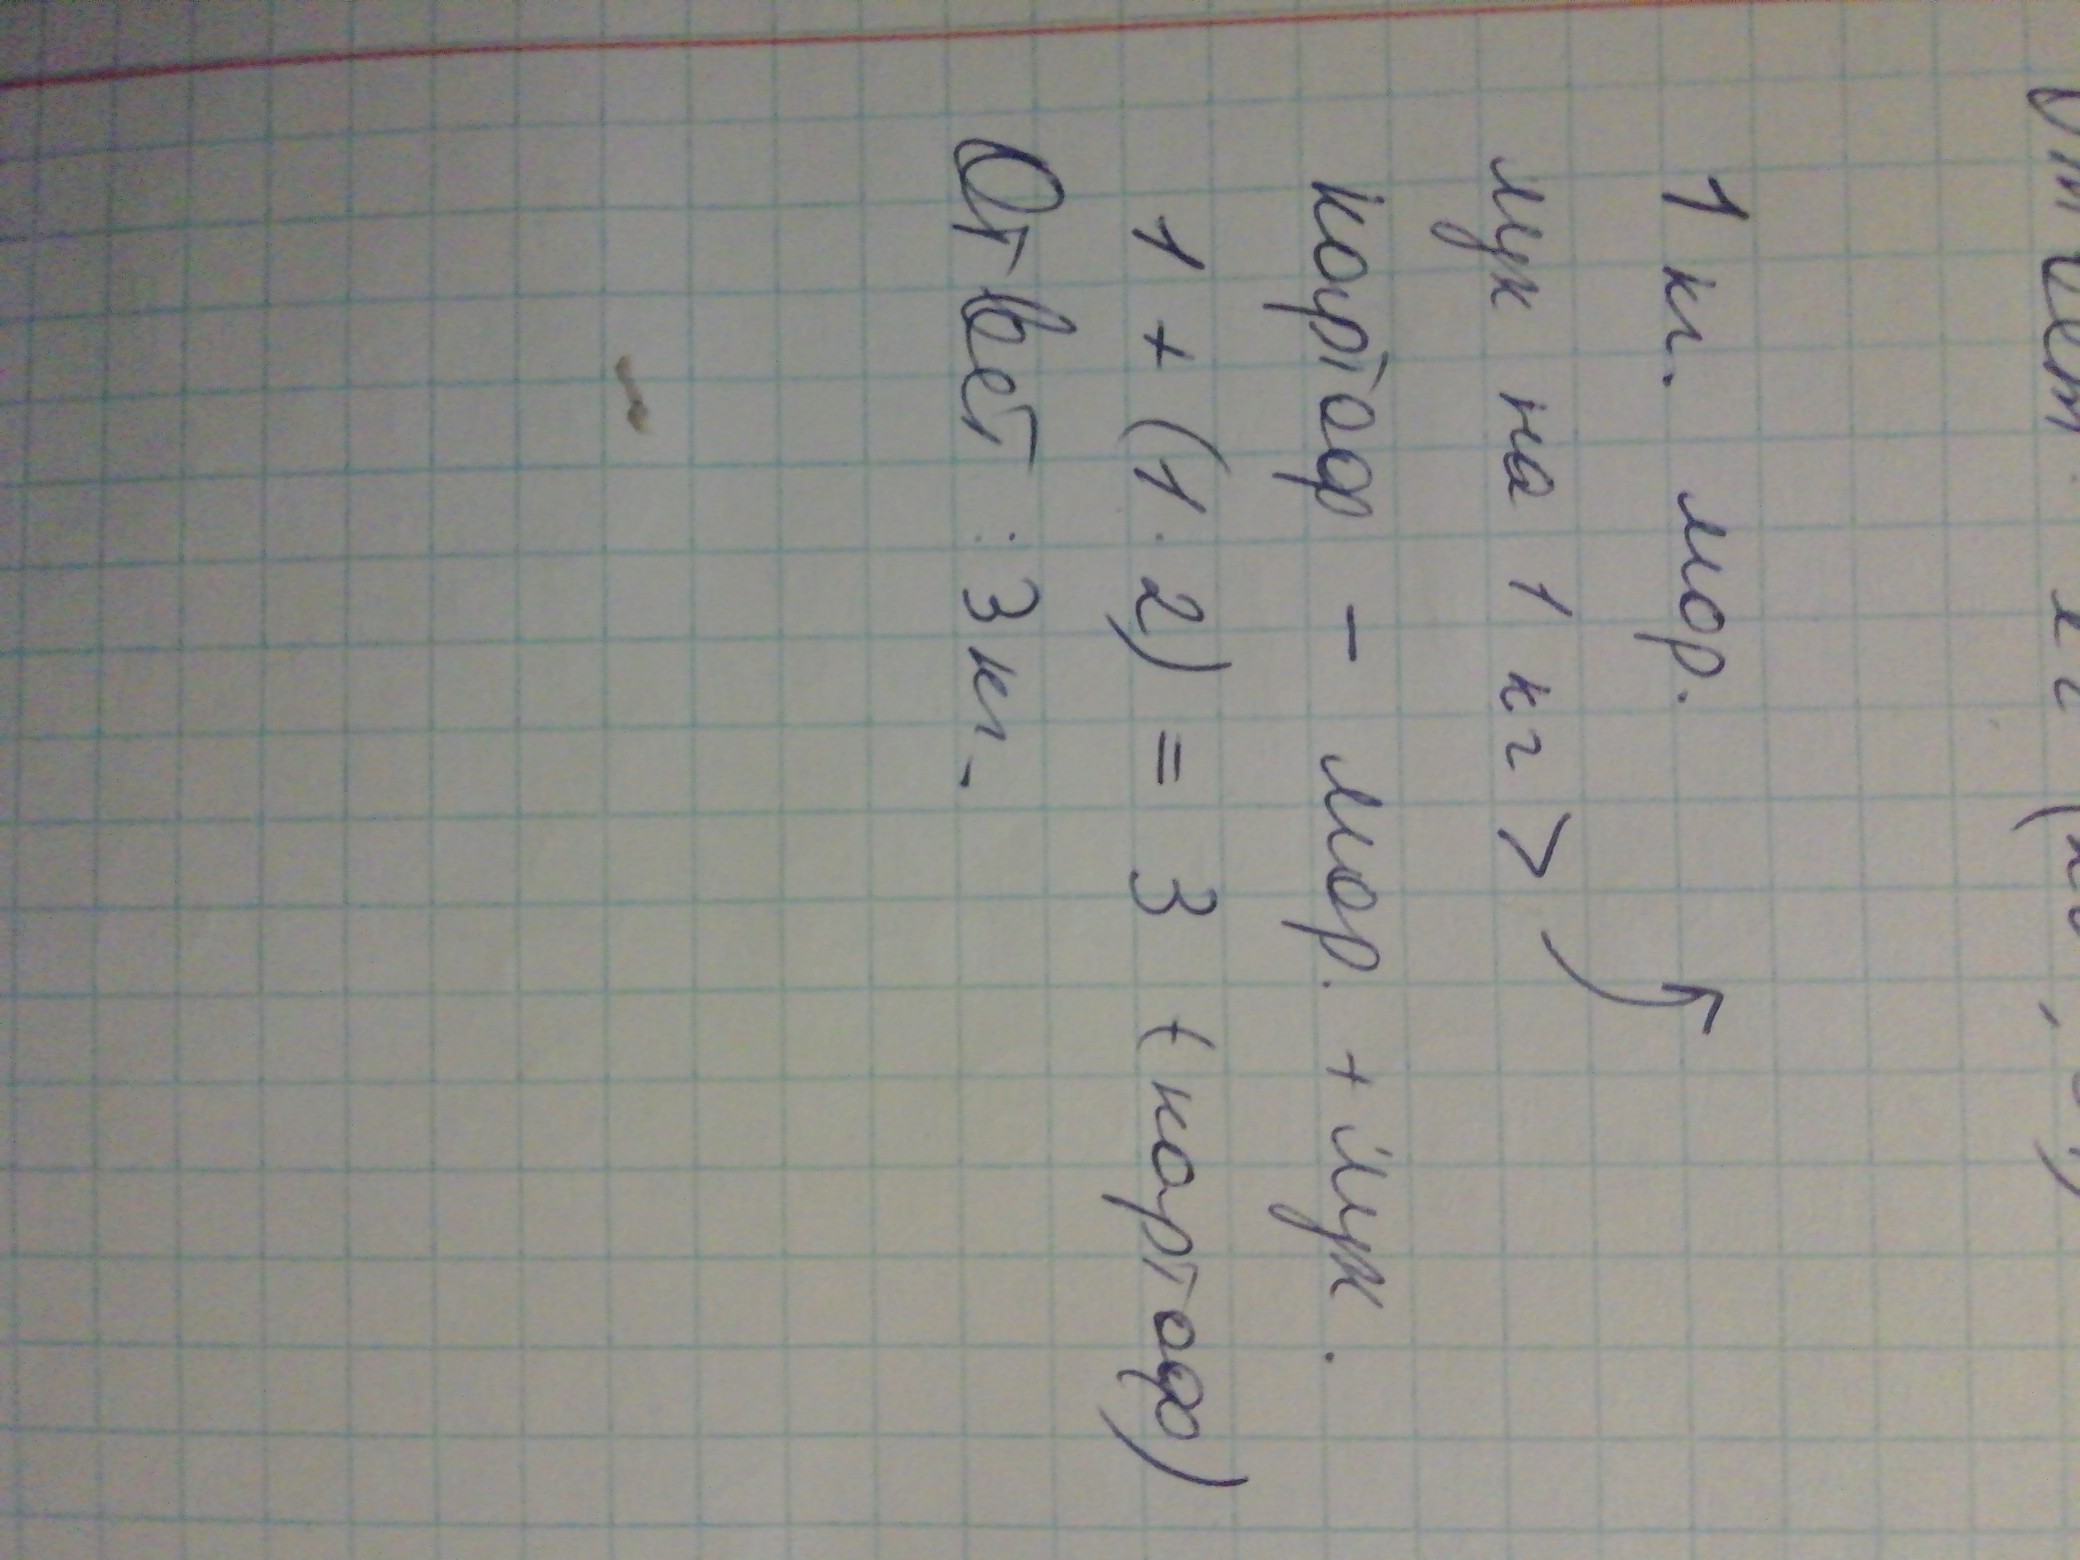 1 кг. мор.
лук на 1 кг >
картоф - мор. + лук.
1 + (1 · 2) = 3 (картоф)
Ответ : 3 кг.